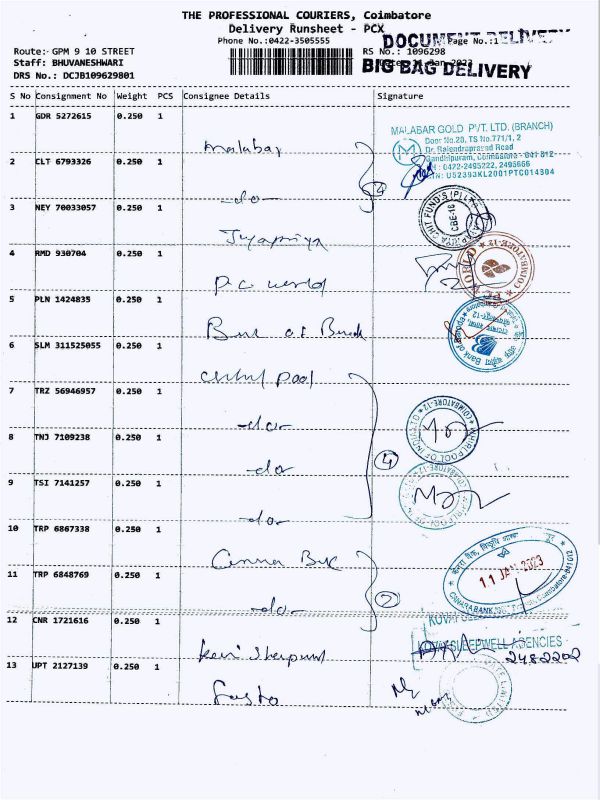 THE PROFESSIONAL COURIERS, Coimbatore
Delivery Runsheet - PCX
Phone No.:0422-3505555
Page No.:1
DOCUMENT DELIVERY
Route:- GPM 9 10 STREET
RS No.: 1096298
Staff: BHUVANESHWARI
BIG BAG DELIVERY
DRS No.: DCJB109629801
S No Consignment No Weight PCS Consignee Details Signature
1 GDR 5272615 0.250 1 Malabar
MALABAR GOLD PVT. LTD. (BRANCH)
Door No.20, TS No.771/1, 2
Dr. Rajendraprasad Road
Gandhipuram, Coimbatore - 641 012
: 0422-2495222, 2495666
: U52393KL2001PTC014304
2 CLT 6793326 0.250 1 -do- 2
3 NEY 70033057 0.250 1 Jayapriya
CHIT FUND'S (P) LTD
CBE-18
4 RMD 930704 0.250 1 PC world
PC WORLD COIMBATORE-12
5 PLN 1424835 0.250 1
Bank of Baroda
6 SLM 311525055 0.250 1
7 TRZ 56946957 0.250 1 -do-
WHIRLPOOL OF INDIA LTD COIMBATORE-12
8 TNJ 7109238 0.250 1 -do- 4
9 TSI 7141257 0.250 1 -do-
10 TRP 6867338 0.250 1
11 JAN 2023
CANARA BANK
Coimbatore-641012
11 TRP 6848769 0.250 1 -do- 2
12 CNR 1721616 0.250 1
SLEEPWELL AGENCIES
2482202
13 UPT 2127139 0.250 1